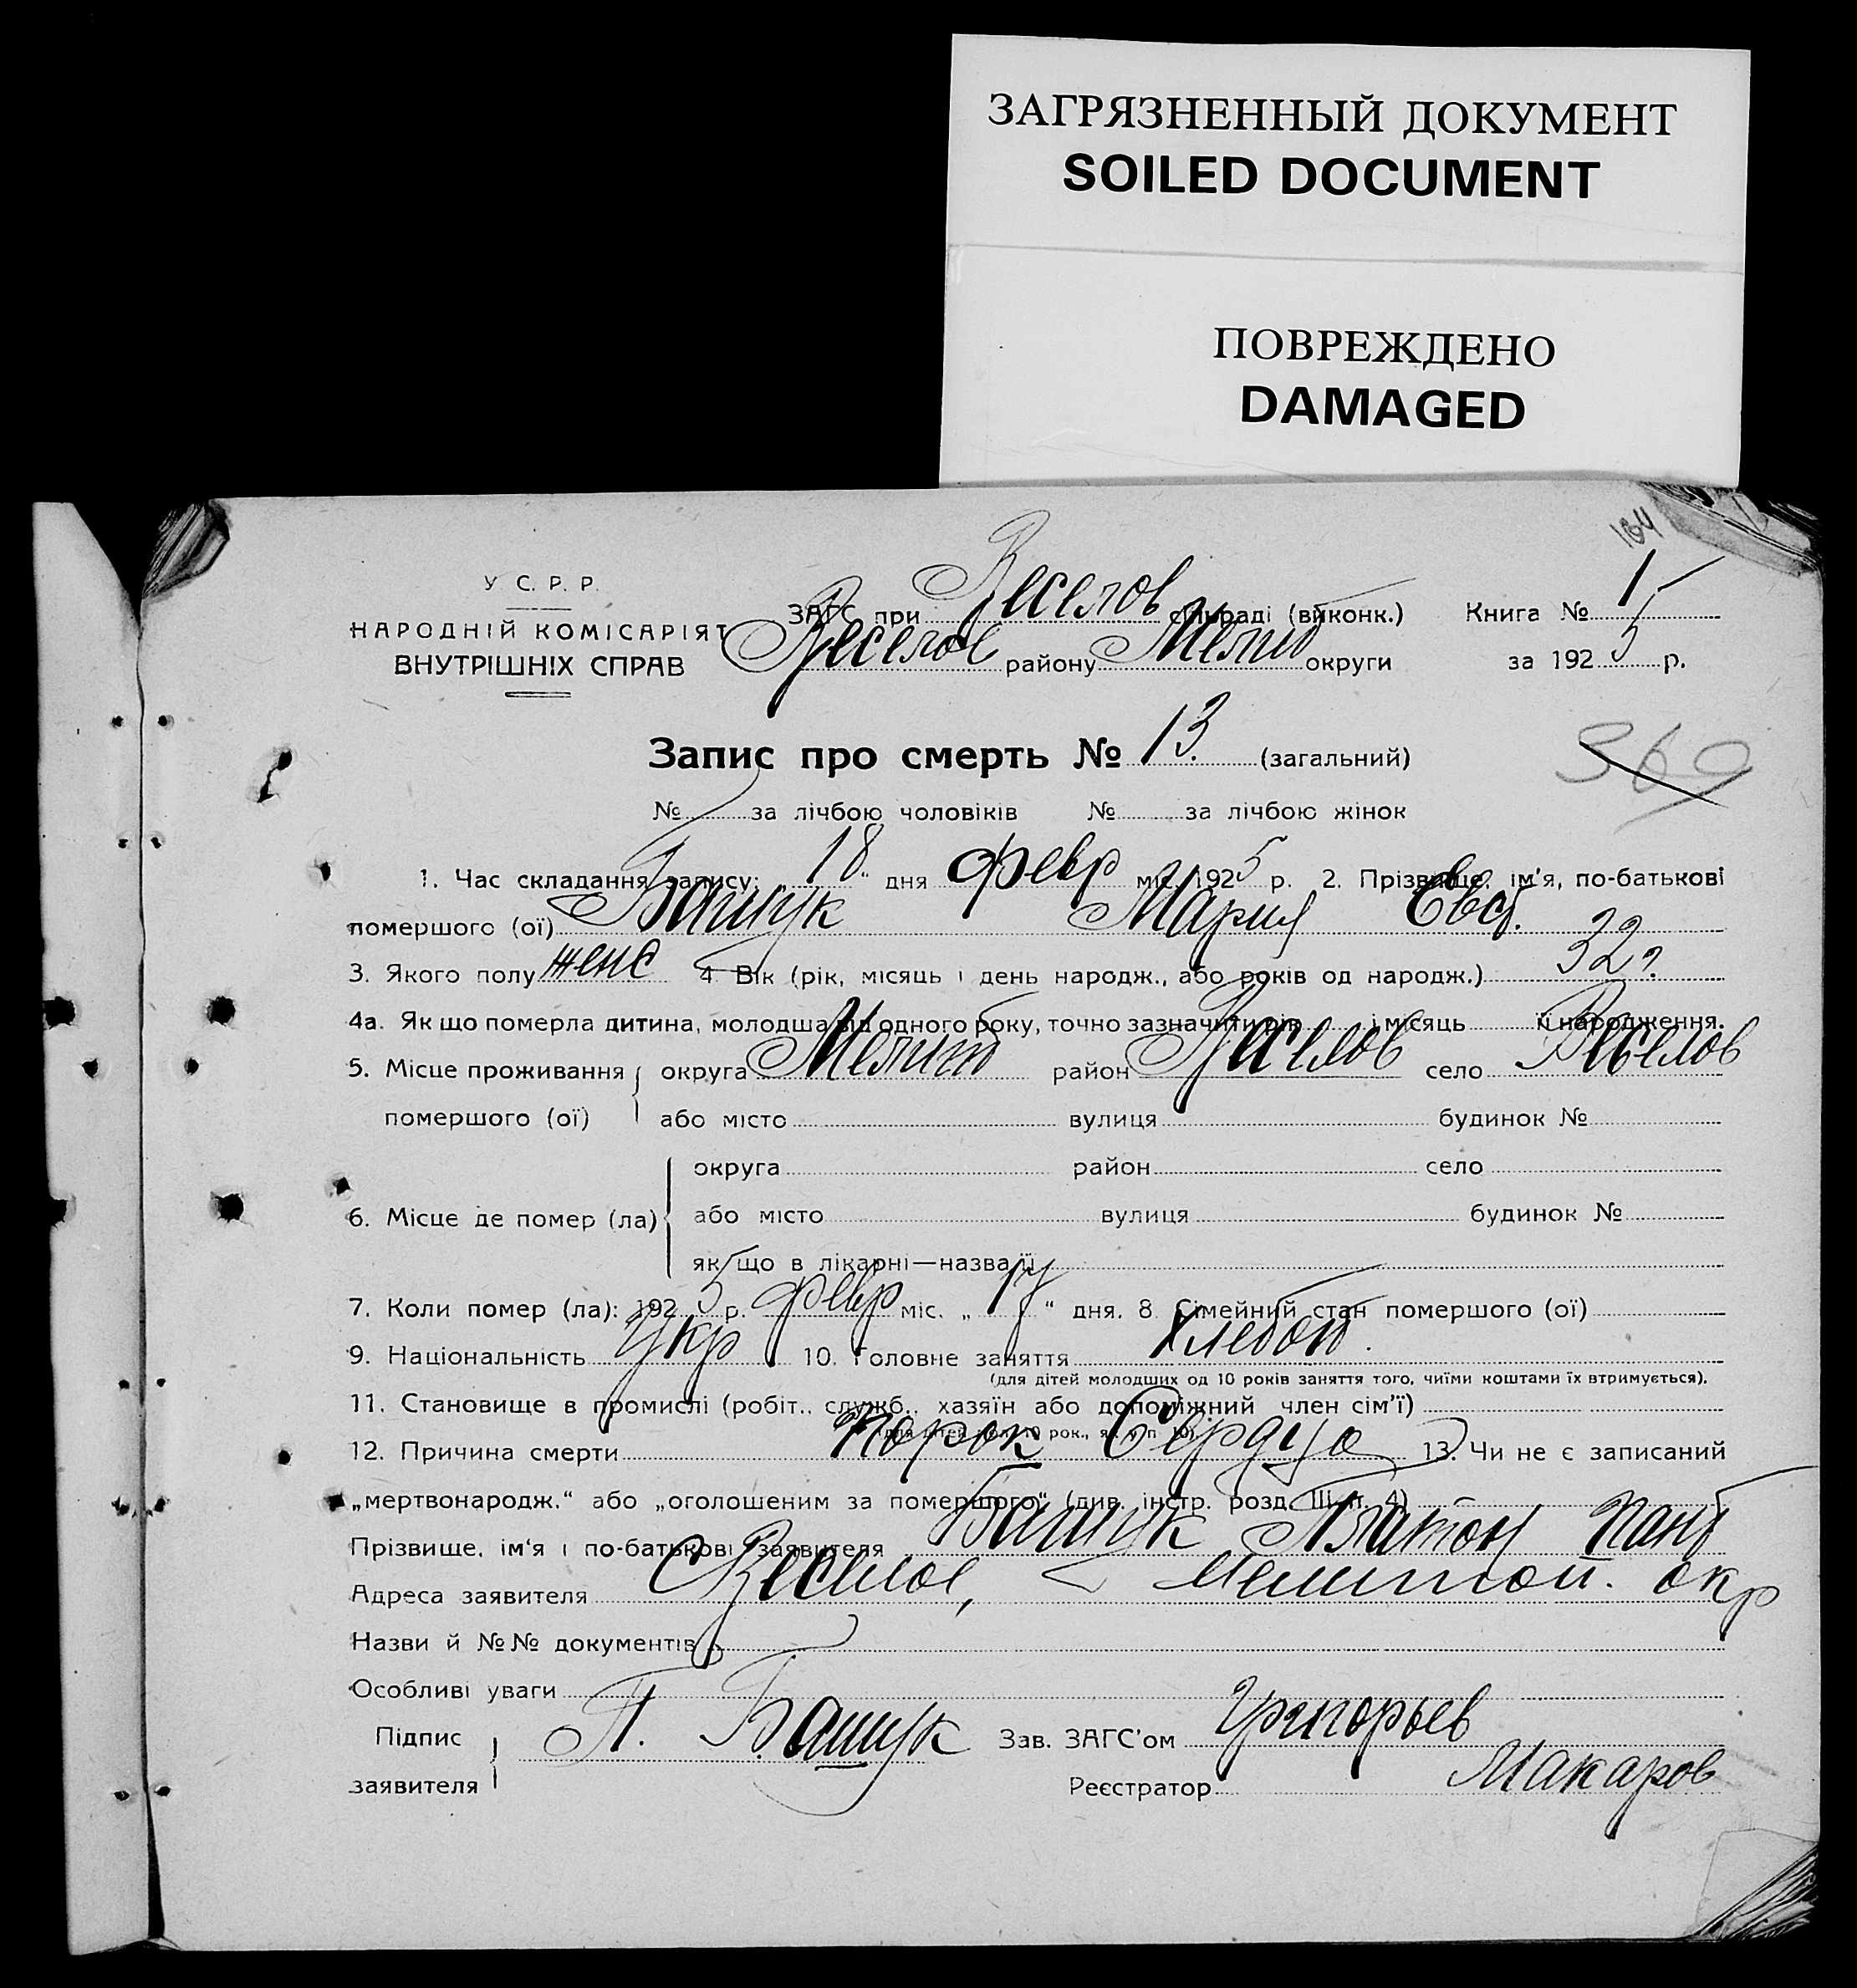 ЗАГРЯЗНЕННЫЙ ДОКУМЕНТ
SOILED DOCUMENT
ПОВРЕЖДЕНО
DAMAGED
184
У С. Р. Р.
НАРОДНІЙ КОМІСАРІЯТ
ВНУТРІШНІХ СПРАВ
ЗАГС при Веселов сільраді (виконк.) Книга № 1
Веселов району Мелит округи за 1925 р.
Запис про смерть № 13. (загальний)
369
№ за лічбою чоловіків № за лічбою жінок
1. Час складання запису: „18“ дня февр міс. 1925 р. 2. Прізвище, ім'я, по-батькові
помершого (ої) Башук Мария Евст.
3. Якого полу женс 4. Вік (рік, місяць і день народж., або років од народж.) 32 г.
4а. Як що померла дитина, молодша від одного року, точно зазначити рік і місяць її народження.
5. Місце проживання округа Мелит район Веселов село Веселов
помершого (ої) або місто вулиця будинок №
округа район село
6. Місце де помер (ла) або місто вулиця будинок №
як що в лікарні—назва її
7. Коли помер (ла): 1925 р. февр міс. „17“ дня. 8. Сімейний стан помершого (ої)
9. Національність Укр 10. Головне заняття Хлебоп.
(для дітей молодших од 10 років заняття того, чиїми коштами їх втримується).
11. Становище в промислі (робіт., служб., хазяїн або допоміжний член сім'ї)
12. Причина смерти Порок Сердца 13. Чи не є записаний
„мертвонародж.“ або „оголошеним за помершого“ (див. інстр. розд. III п. 4)
Прізвище, ім'я і по-батькові заявителя Башук Платон Пант
Адреса заявителя Веселое, Мелитоп. окр
Назви й №№ документів
Особливі уваги
Підпис заявителя П. Башук Зав. ЗАГС'ом Григорьев
Реєстратор Макаров